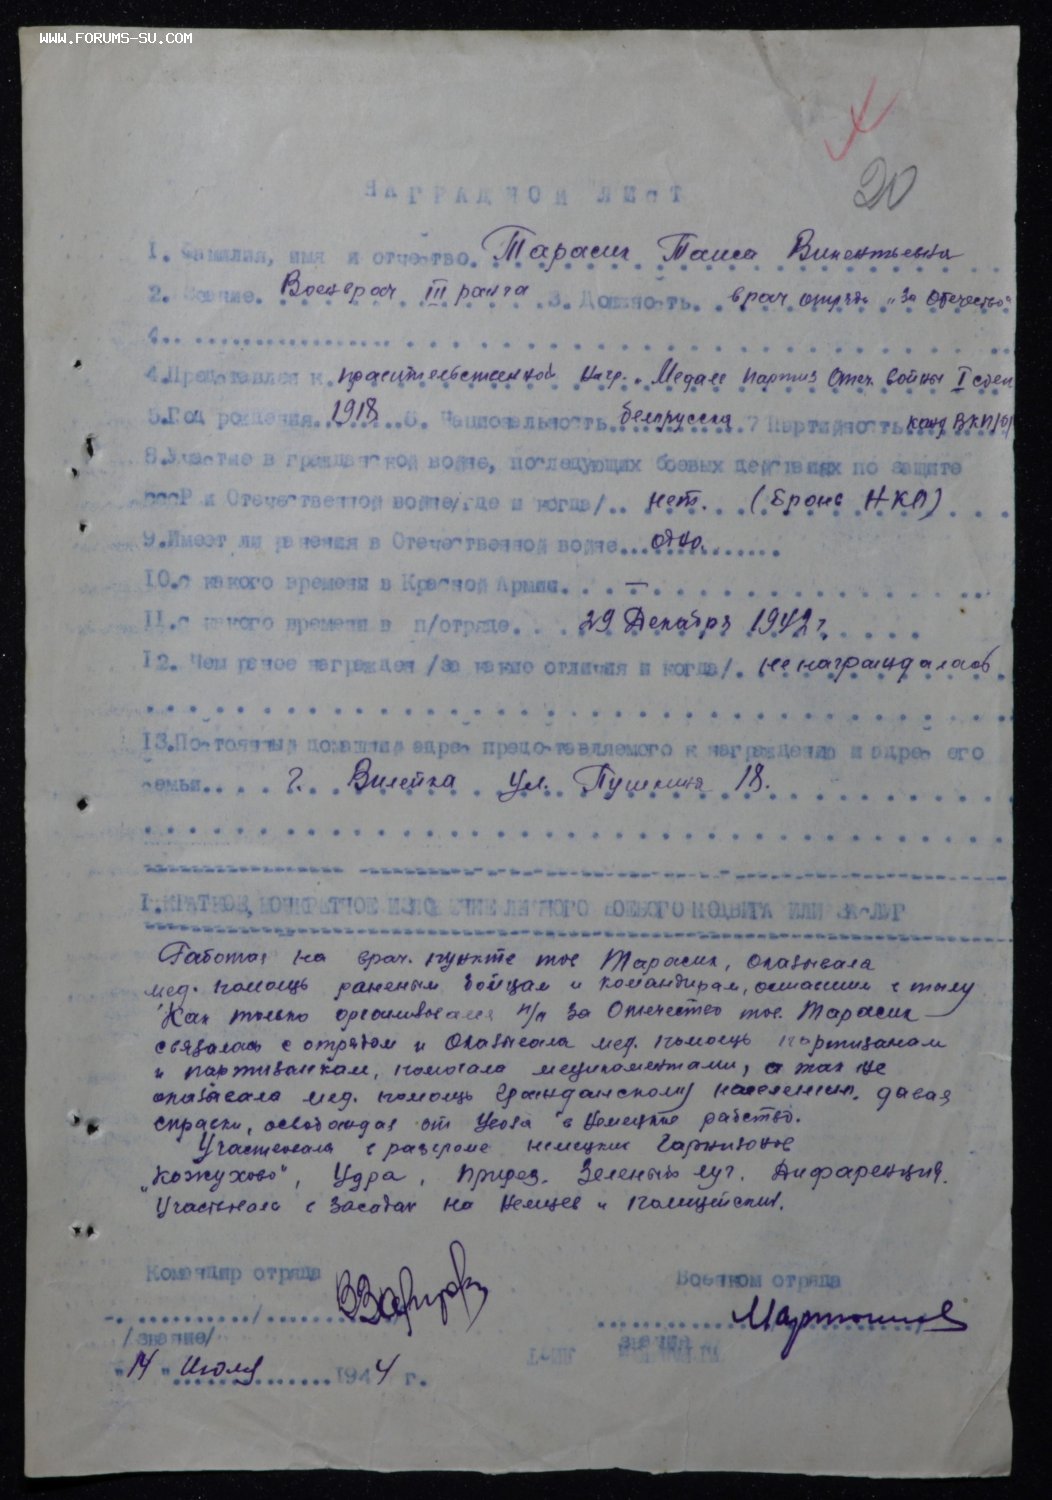 WWW.FORUMS-SU.COM
20
НАГРАДНОЙ ЛИСТ
1. Фамилия, имя и отчество. Тарасик Таиса Викентьевна
2. Звание. Военврач III ранга 3. Должность. врач отряда "За Отечество"
4.
4. Представлен к правительственной нагр. Медале Партиз Отеч. войны I степ
5. Год рождения 1918 6. Национальность белорусска 7 Партийность канд ВКП/б/
8. Участие в гражданской войне, последующих боевых действиях по защите
СССР и Отечественной войне/где и когда/.. нет. (Бронь НКП)
9. Имеет ли ранения в Отечественной войне... одно
10. с какого времени в Красной Армии. —
11. с какого времени в п/отряде. 29 Декабря 1942 г
12. Чем ранее награжден /за какие отличия и когда/. не награждалась
13. Постоянный домашний адрес представляемого к награждению и адрес его
семьи. г. Вилейка ул. Пушкина 18.
1. КРАТКОЕ, КОНКРЕТНОЕ ИЗЛОЖЕНИЕ ЛИЧНОГО БОЕВОГО ПОДВИГА ИЛИ ЗАСЛУГ
Работая на врач. пункте тов Тарасик, оказывала
мед. помощь раненым бойцам и командирам, в тылу
Как только организовался п/о За Отечество тов. Тарасик
связалась с отрядом и оказывала мед. помощь партизанам
и партизанкам, помогала медикаментами, а так же
оказывала мед. помощь гражданскому населению, давая
справки, освобождая от увоза в немецкое рабство.
Участвовала в разгроме немецких гарнизонов
"Кожухово", Удра, Зеленый луг.
Участвовала в засадах на немцев и полицейских.
Командир отряда
Военком отряда
Мартынов
/звание/
звание
"14" Июля 1944 г.